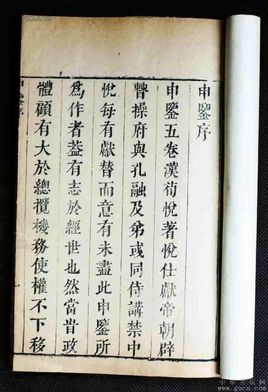 申鑒序
申鑒五卷漢荀悅著悅仕獻帝朝辟
曹操府與孔融及弟彧同侍講禁中
悅每有獻替而意有未盡此申鑒所
爲作者蓋有志於經世也然當時政
體顧有大於總攬機務使權不下移